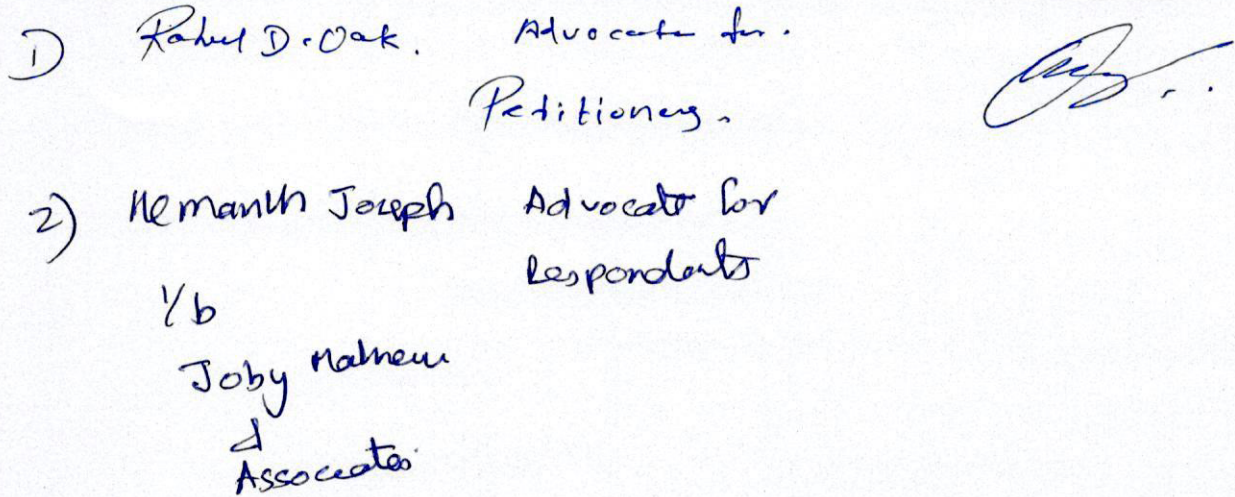 1) Rahul D. Oak. Advocate for.
Petitioners.
2) Hemanth Joseph Advocate for
Respondents
i/b
Joby Mathew
&
Associates